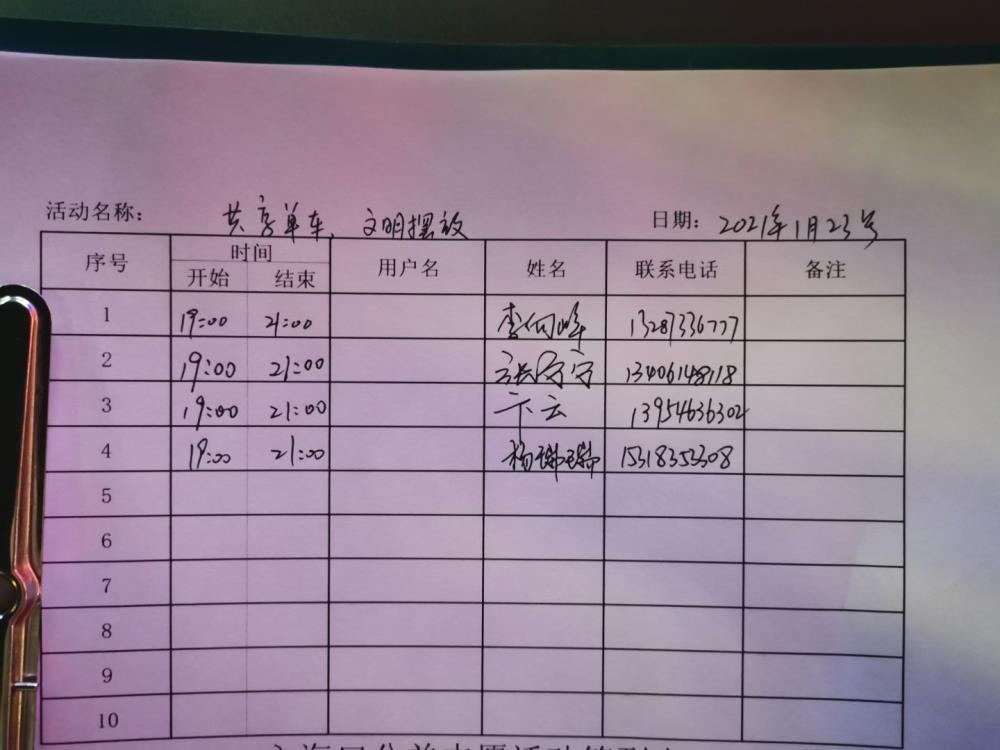 活动名称： 共享单车、文明摆放 日期： 2021年1月23号
序号 时间 用户名 姓名 联系电话 备注
开始 结束
1 19:00 21:00 李向峰 13287336777
2 19:00 21:00 张宁宁 13406148118
3 19:00 21:00 卞云 13954636302
4 19:00 21:00 杨瑞瑞 15318353308
5
6
7
8
9
10